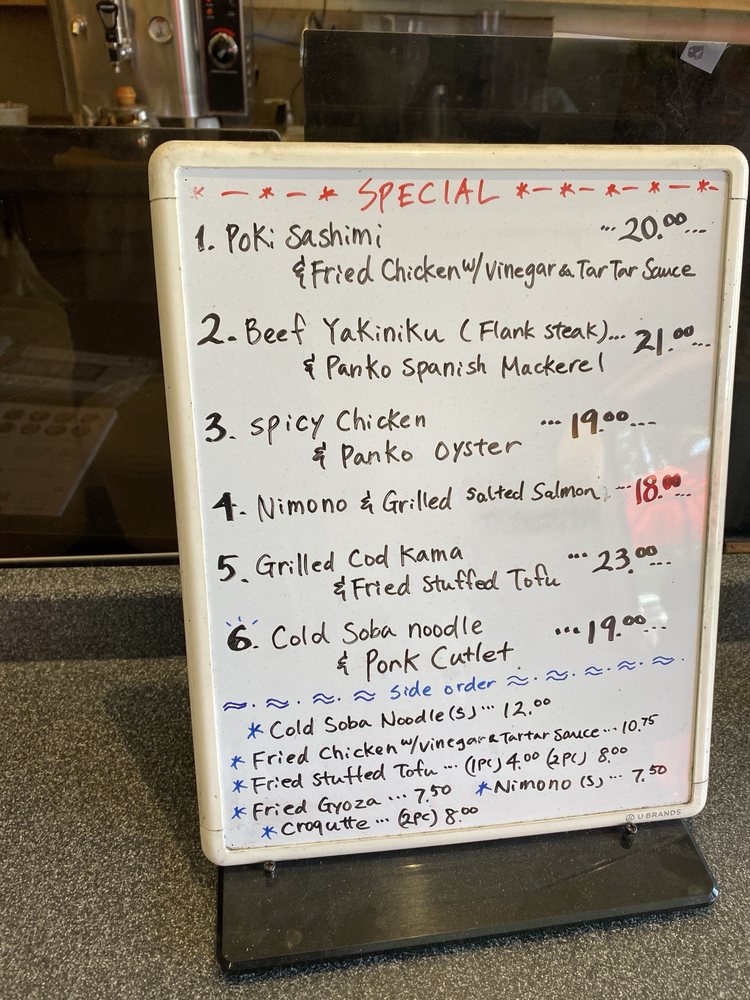 * - * - * SPECIAL * - * - * - * - *
1. Poki Sashimi ... 20.00...
& Fried Chicken w/ vinegar & Tar Tar Sauce
2. Beef Yakiniku (Flank steak)... 21.00...
& Panko Spanish Mackerel
3. Spicy Chicken ... 19.00...
& Panko Oyster
4. Nimono & Grilled Salted Salmon ... 18.00...
5. Grilled Cod Kama ... 23.00...
& Fried Stuffed Tofu
6. Cold Soba noodle ... 19.00...
& Pork Cutlet
Side order
* Cold Soba Noodle (s) ... 12.00
* Fried Chicken w/ vinegar & Tartar Sauce ... 10.75
* Fried Stuffed Tofu ... (1pc) 4.00 (2pc) 8.00
* Fried Gyoza ... 7.50 * Nimono (s) ... 7.50
* Croqutte ... (2pc) 8.00
U BRANDS